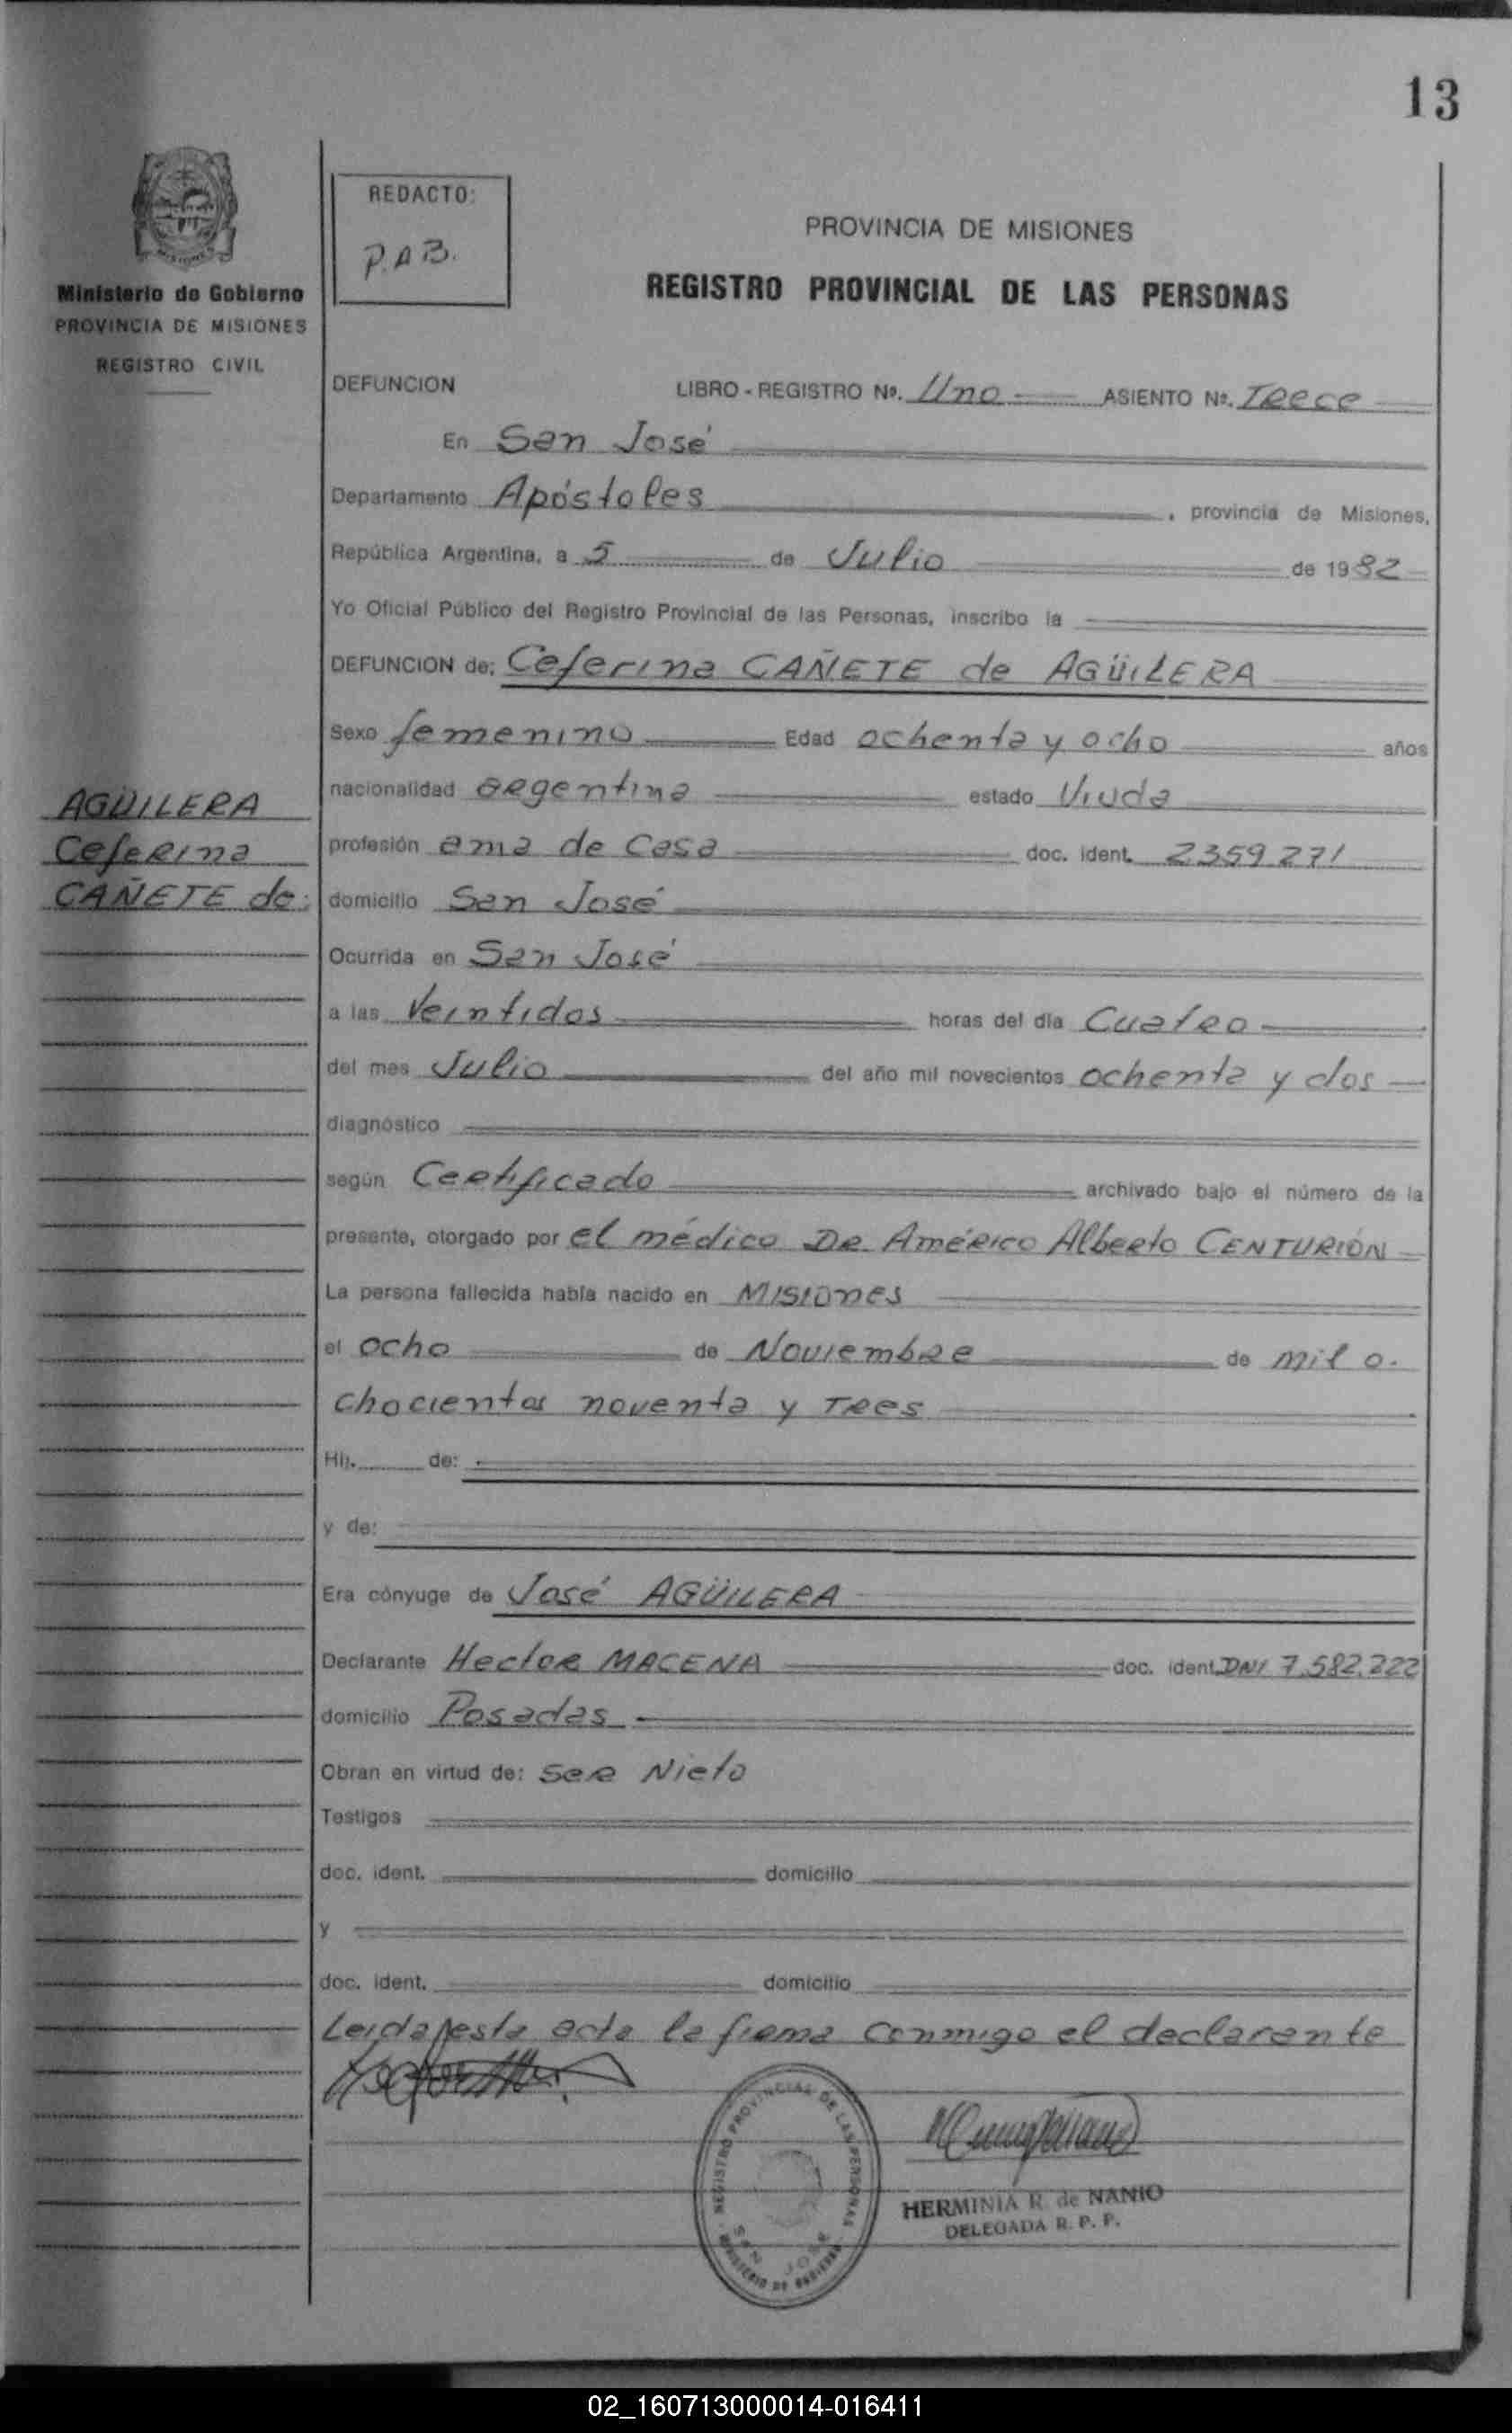 13
REDACTO:
P.A B.
PROVINCIA DE MISIONES
REGISTRO PROVINCIAL DE LAS PERSONAS
Ministerio de Gobierno
PROVINCIA DE MISIONES
REGISTRO CIVIL
DEFUNCION LIBRO - REGISTRO Nº. Uno ASIENTO Nº. Trece
En San José
Departamento Apóstoles , provincia de Misiones,
República Argentina, a 5 de Julio de 1982
Yo Oficial Público del Registro Provincial de las Personas, inscribo la
DEFUNCION de: Ceferina CAÑETE de AGÜILERA
Sexo femenino Edad ochenta y ocho años
nacionalidad argentina estado Viuda
AGÜILERA
Ceferina
CAÑETE de:
profesión ama de casa doc. ident. 2359271
domicilio San José
Ocurrida en San José
a las Veintidos horas del día Cuatro
del mes Julio del año mil novecientos ochenta y dos
diagnóstico
según Certificado archivado bajo el número de la
presente, otorgado por el médico Dr. Américo Alberto CENTURIÓN
La persona fallecida había nacido en Misiones
el ocho de Noviembre de mil o.
chocientos noventa y Tres
Hij. de:
y de:
Era cónyuge de José AGÜILERA
Declarante Hector MACENA doc. ident. DNI 7.582.222
domicilio Posadas
Obran en virtud de: ser Nieto
Testigos
doc. ident. domicilio
y
doc. ident. domicilio
Leida esta acta la firma conmigo el declarante
REGISTRO PROVINCIAL DE LAS PERSONAS
SAN JOSE
MINISTERIO DE GOBIERNO
HERMINIA R. de NANIO
DELEGADA R. P. P.
02_160713000014-016411